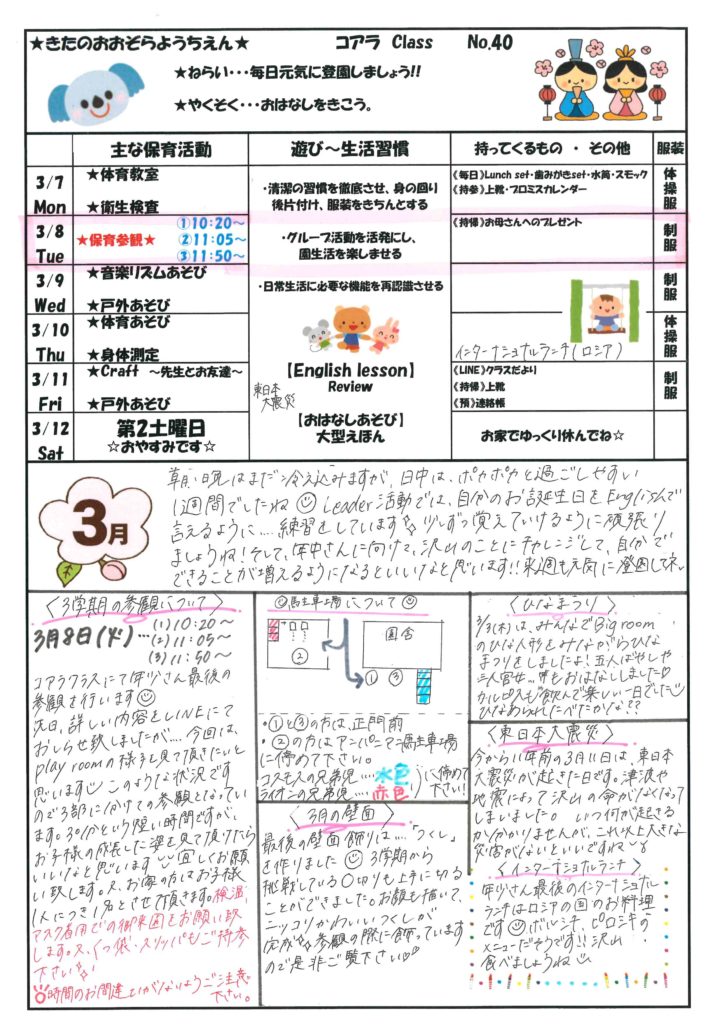 ★きたのおおぞらようちえん★
コアラ Class No.40
★ねらい・・・毎日元気に登園しましょう!!
★やくそく・・・おはなしをきこう。
主な保育活動
遊び～生活習慣
持ってくるもの ・ その他
服装
3/7
Mon
★体育教室
★衛生検査
・清潔の習慣を徹底させ、身の回り
後片付け、服装をきちんとする
《毎日》Lunch set・歯みがきset・水筒・スモック
《持参》上靴・プロミスカレンダー
体操服
3/8
Tue
★保育参観★
①10:20～
②11:05～
③11:50～
・グループ活動を活発にし、
園生活を楽しませる
《持帰》お母さんへのプレゼント
制服
3/9
Wed
★音楽リズムあそび
★戸外あそび
・日常生活に必要な機能を再認識させる
制服
3/10
Thu
★体育あそび
★身体測定
インターナショナルランチ(ロシア)
体操服
3/11
Fri
★Craft ～先生とお友達～
★戸外あそび
東日本
大震災
【English lesson】
Review
《LINE》クラスだより
《持帰》上靴
《預》連絡帳
制服
3/12
Sat
第2土曜日
☆おやすみです☆
【おはなしあそび】
大型えほん
お家でゆっくり休んでね☆
3月
朝・晩はまだ冷え込みますが、日中は、ポカポカと過ごしやすい
1週間でしたね Leader活動では、自分のお誕生日をEnglishで
言えるように…練習をしています 少しずつ覚えていけるように頑張り
ましょうね!そして、年中さんに向けて、沢山のことにチャレンジして、自分で
できることが増えるようになるといいなと思います!!来週も元気に登園してネ
〈3学期の参観について〉
3月8日(火)…(1)10:20～
(2)11:05～
(3)11:50～
コアラクラスにて年少さん最後の
参観を行います
先日、詳しい内容をLINEにて
おしらせ致しましたが…、今回は、
play roomの様子を見て頂きたいと
思います このような状況です
ので3部に分けての参観となってい
ます。30分という短い時間ですが、
お子様の成長した姿を見て頂けたら
いいなと思います 宜しくお願
い致します。又、お家の方はお子様
1人につき1名とさせて頂きます。検温、
マスク着用での御来園をお願い致
します。又、くつ袋・スリッパもご持参
下さい
時間のお間違いがないようご注意
下さい。
◎駐車場について
②
園舎
① ③
・①と③の方は、正門前
・②の方はアニパニアラ駐車場
に停めて下さい。
コスモスの兄弟児……水色
ライオンの兄弟児……赤色
に停めて
下さい!
〈3月の壁面〉
最後の壁面飾りは…「つくし」
を作りました 3学期から
挑戦している○切りも上手に切る
ことができました。お顔も描いて、
ニッコリかわいいつくしが
完成 参観の際に飾っています
ので是非ご覧下さい
〈ひなまつり〉
3/3(木)は、みんなでBig room
のひな人形をみながらひな
まつりをしましたよ!五人ばやしや
三人官女…等もおはなししました
カルピスも飲んで楽しい一日でした
ひなあられたべたかな??
〈東日本大震災〉
今から11年前の3月11日は、東日本
大震災が起きた日です。津波や
地震によって沢山の命がなくなって
しまいました。いつ何が起きる
か分かりませんが、これ以上大きな
災害がないといいですね
〈インターナショナルランチ〉
年少さん最後のインターナショナル
ランチはロシアの国のお料理
です ボルシチ、ピロシキの
メニューだそうです!!沢山
食べましょうね